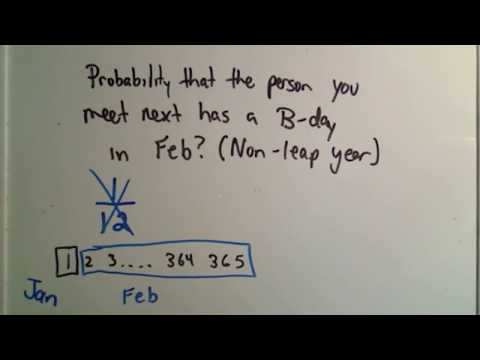 Probability that the person you
meet next has a B-day
in Feb? (Non-leap year)
1
12
1 2 3.... 364 365
Jan Feb